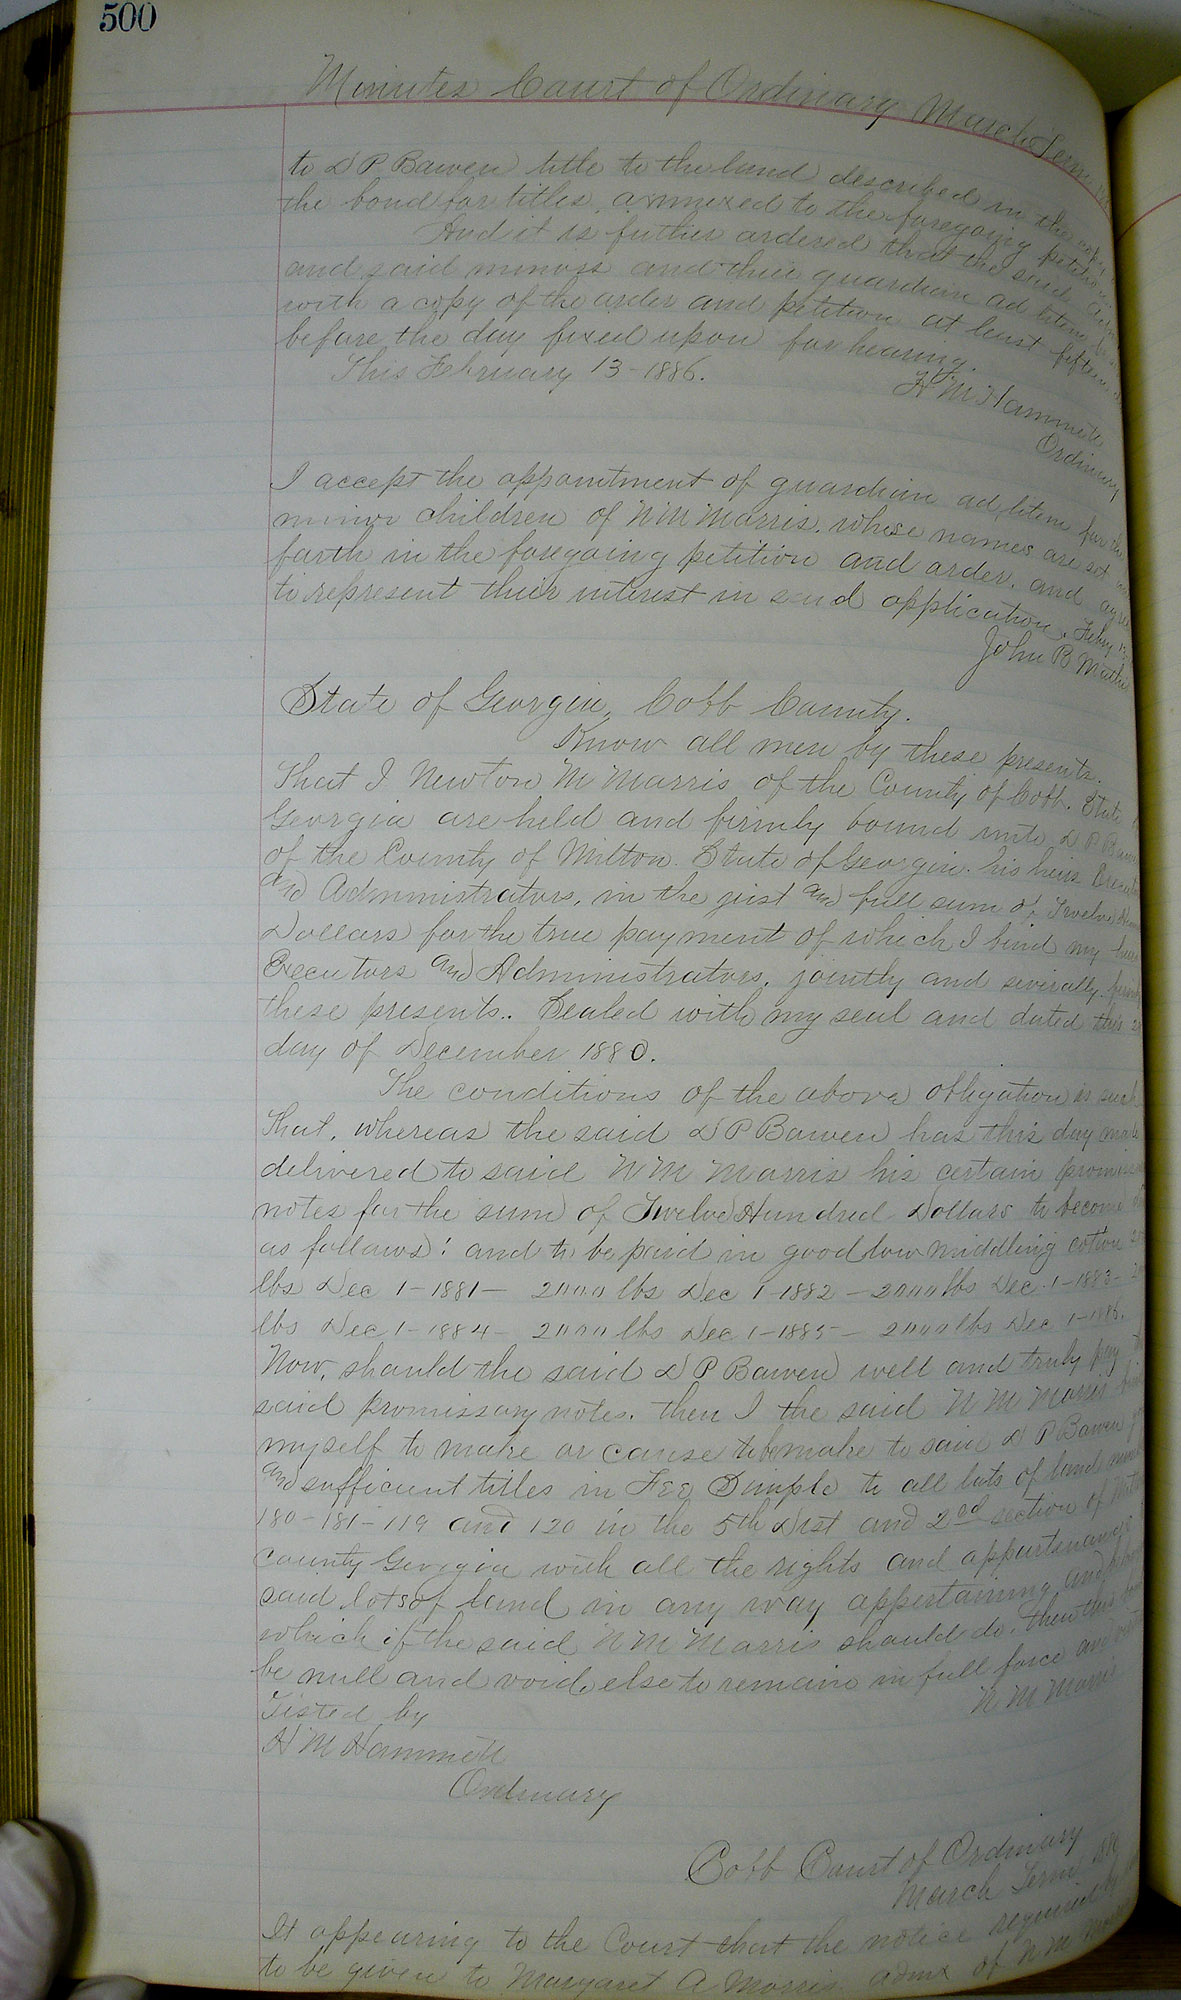 500
Minutes Court of Ordinary March Term
to D P Bowen title to the land described in the copy
the bond for titles, annexed to the foregoing petition
And it is futher ordered that the said
and said minors and their guardian ad litem be
with a copy of the order and petition at least fifteen
before the day fixed upon for hearing.
This February 13-1886.
H M Hammett
Ordinary
I accept the appointment of guardian ad litem for the
minor children of N M Morris. whose names are set
forth in the foregoing petition and order. and agree
to represent their interest in said application. Feby 13
John B
State of Georgia, Cobb County.
Know all men by these presents.
That I Newton M Morris of the County of Cobb. State
Georgia are held and firmly bound unto D P Bowen
of the County of Milton. State of Georgia. his heirs
and Administrators, in the just and full sum of Twelve
Dollars for the true payment of which I bind my heirs
Executors and Administrators, jointly and severally
these presents.. Sealed with my seal and dated this
day of December 1880.
The conditions of the above obligation is such
That, whereas the said D P Bowen has this day made
delivered to said N M Morris his certain
notes for the sum of Twelve Hundred Dollars to become
as follows: and to be paid in good low middling cotton
lbs Dec 1-1881- 2000 lbs Dec 1-1882-2000 lbs Dec 1-1883-
lbs Dec 1-1884- 2000 lbs Dec 1-1885- 2000 lbs Dec 1-1886.
Now, should the said D P Bowen well and truly pay
said promissary notes. then I the said N M Morris bind
myself to make or cause to be make to said D P Bowen
and sufficient titles in Fee Simple to all lots of land
180-181-119 and 120 in the 5th Dist and 2nd section of
County Georgia with all the rights and
said lots of land in any way appertaining and
which if the said N M Morris should do. then this
be null and void, else to remain in full force and
N M Morris
Tisted by
H M Hammett
Ordinary
Cobb Court of Ordinary
March Term
It appearing to the Court that the notice required
to be given to Margaret A Morris. admx of N M